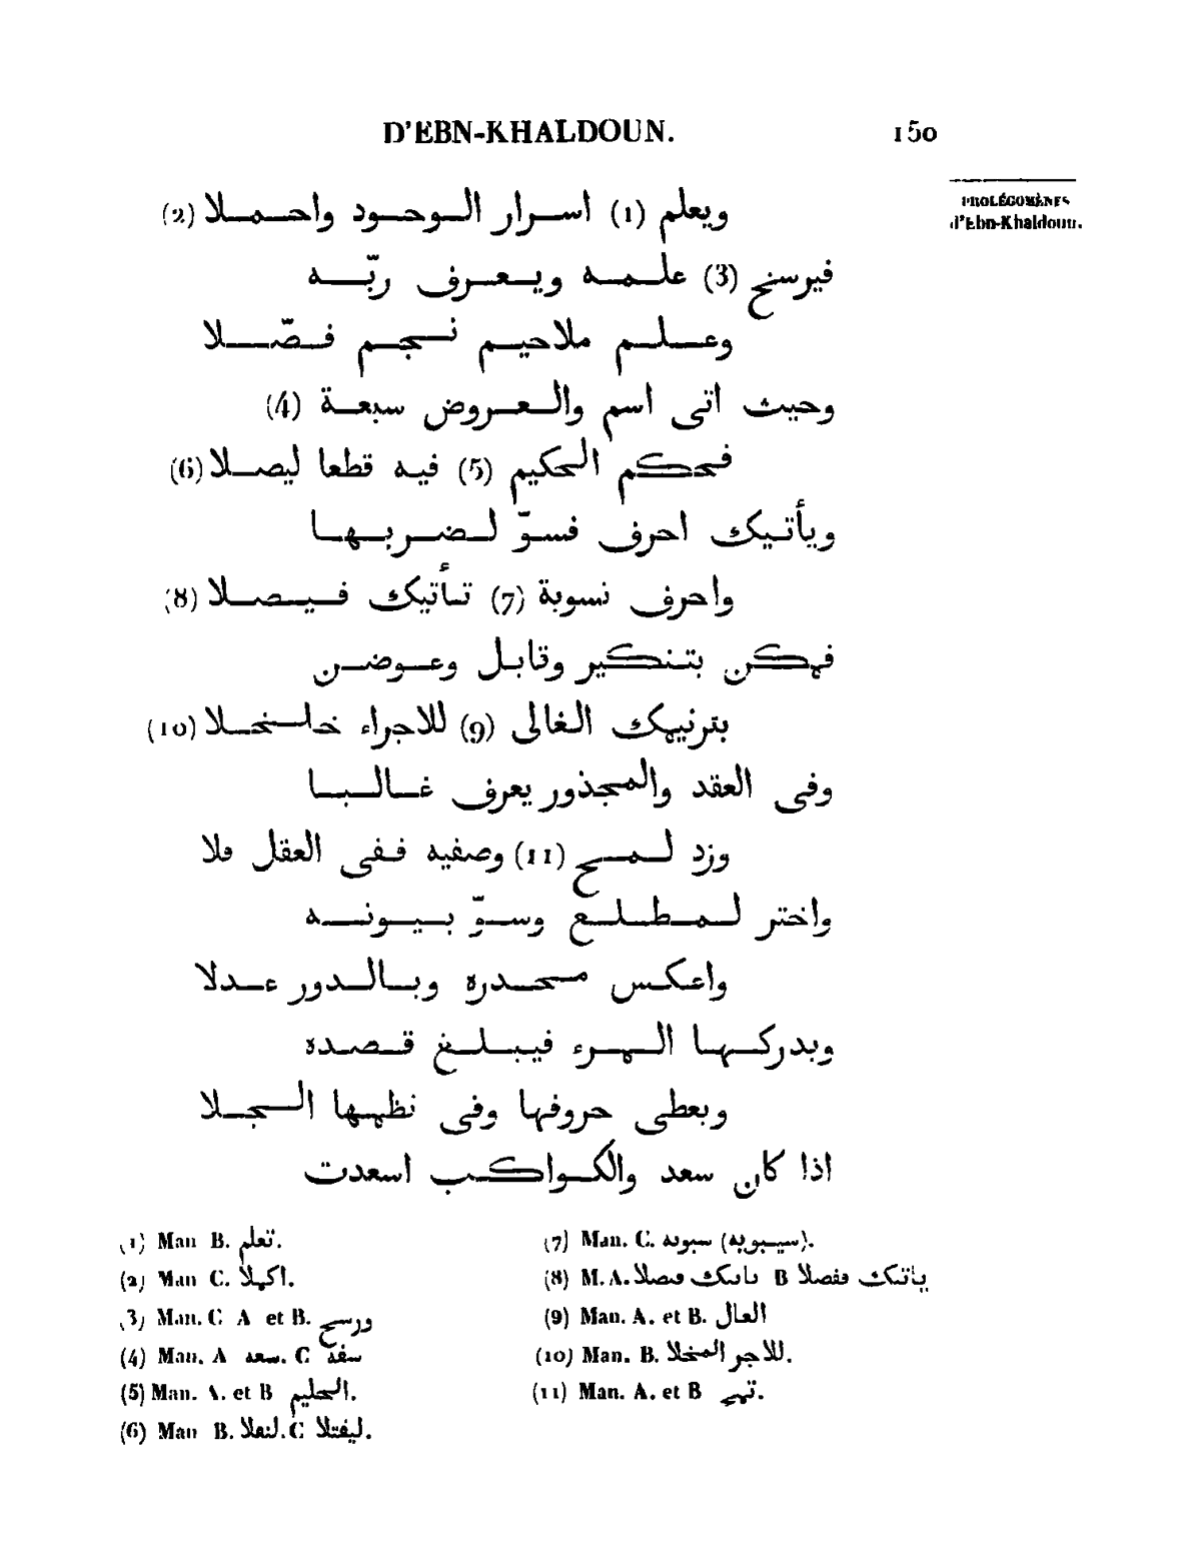 D'EBN-KHALDOUN. 150
PROLÉGOMÈNES
d'Ebn-Khaldoun.
ويعلم (1) اسرار الوجود واجملا (2)
فيرسنح (3) علمه ويعرف ربّه
وعلم ملاحيم نجم فصّلا
وحيث اتى اسم والعروض سبعة (4)
فحكم الحكيم (5) فيه قطعا ليصلا (6)
ويأتيك احرف فسوّ لضربها
واحرف نسوبة (7) تأتيك فيصلا (8)
فمكن بتنكير وقابل وعوضن
بترنيمك الغالى (9) للاجراء خلخلا (10)
وفى العقد والمجذور يعرف غالبا
وزد لمح (11) وصفيه ففى العقل فلا
واختر لمطلع وسوّ بيونه
واعكس محدره وبالدور عدلا
ويدركها المرء فيبلغ قصده
ويعطى حروفها وفى نظمها انجلا
اذا كان سعد والكواكب اسعدت
(1) Man B. تعلم.
(2) Man C. اكملا.
(3) Man. C A et B. ورسح
(4) Man. A سعه. C سفه
(5) Man. A. et B الحليم.
(6) Man B. C ليفتلا.
(7) Man. C. سبويه (سيبويه).
(8) M. A. B ياتنك فقصلا
(9) Man. A. et B. العال
(10) Man. B. للاجر المخلا.
(11) Man. A. et B